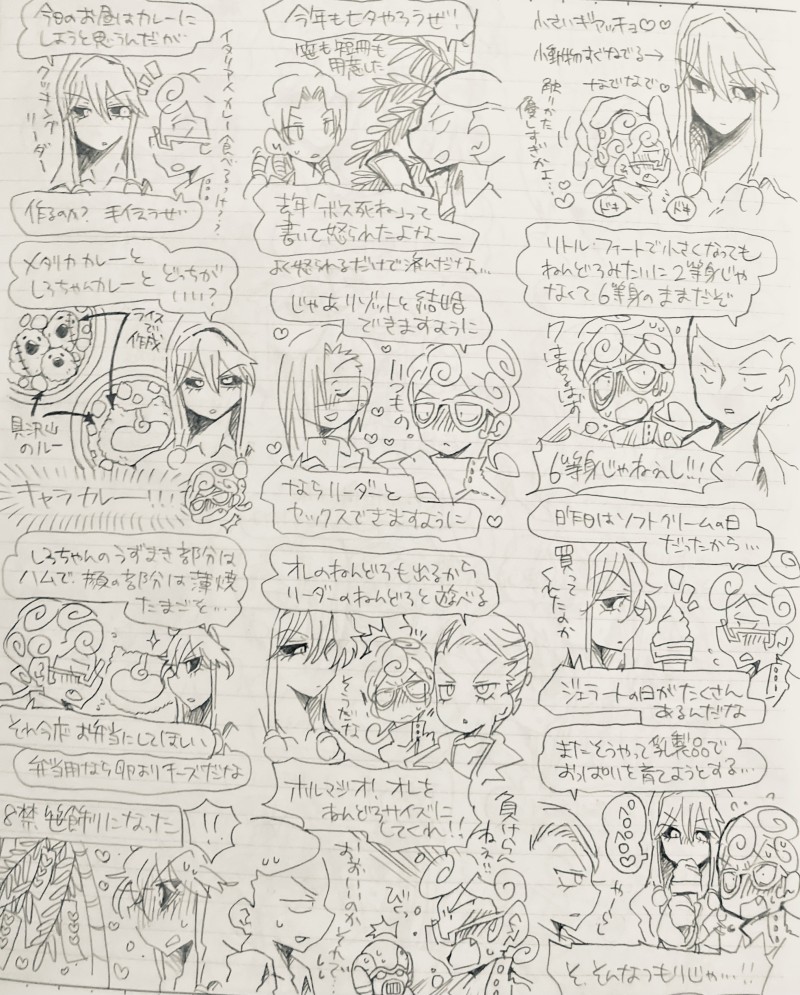 小さいギアッチョ♡♡
小動物すぐなでる→
なでなで♡
触りかた
優しすぎかよ…♡
ドキ
ドキ
リトル・フィートで小さくなっても
ねんどろみたいに2等身じゃ
なくて6等身のままだぞ
6等身じゃねえし!!!
昨日はソフトクリームの日
だったから…
買って
くれたのか
ジェラートの日がたくさん
あるんだな
またそうやって乳製品で
おっぱいを育てようとする…
ペロペロ♡
そ、そんなつもりじゃ…!!
今年も七夕やろうぜ!
笹も短冊も
用意した
去年「ボス死ね」って
書いて怒られたよなー
よく怒られるだけで済んだな…
じゃあリゾットと結婚
できますように
いつもの
ならリーダーと
セックスできますように
オレのねんどろも出るから
リーダーのねんどろと遊べる
そこだな
ホルマジオ!オレを
ねんどろサイズに
してくれ!!
負けらん
ねぇ!!
おおいのか
それで…
今日のお昼はカレーに
しようと思うんだが
イタリア人カレー食べるっけ??
クッキング
リーダー
作るのか?手伝うぜ…
メタリカカレーと
しろちゃんカレーと どっちが
いい?
ライスで
作成
具沢山
のルー
キャラカレー!!!
しろちゃんのうずまき部分は
ハムで、顔の部分は薄焼
たまごで…
それ今度お弁当にしてほしい
弁当用なら卵よりチーズだな
18禁笹飾りになった
!!